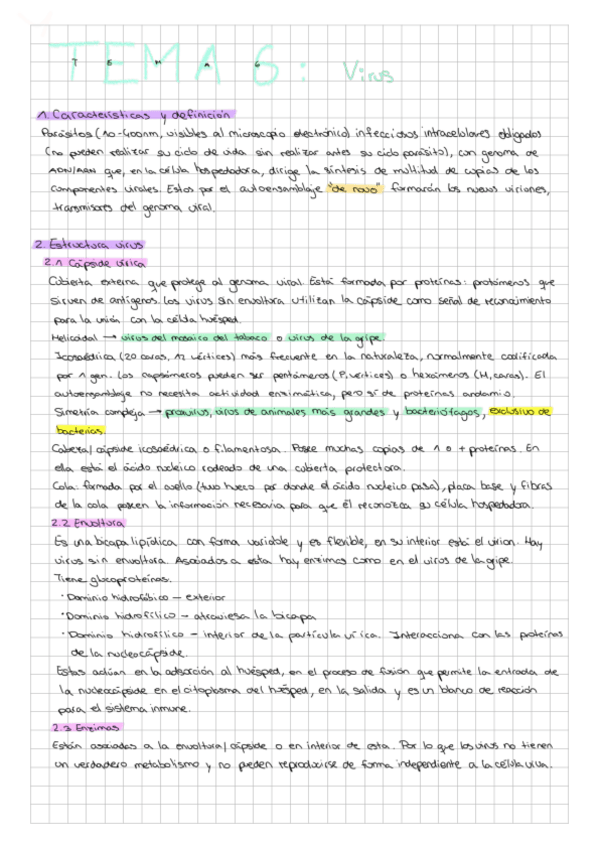 TEMA 6: Virus
T E M A 6
1. Características y definición
Parásitos (10-400nm, visibles al microscopio electrónico) infecciosos intracelulares obligados
(no pueden realizar su ciclo de vida sin realizar antes su ciclo parásito), con genoma de
ADN/ARN que, en la célula hospedadora, dirige la síntesis de multitud de copias de los
componentes virales. Estos por el autoensamblaje "de novo" formarán los nuevos viriones,
transmisores del genoma viral.
2. Estructura virus
2.1 Cápside vírica
Cubierta externa que protege al genoma viral. Está formada por proteínas: protómeros que
sirven de antígenos. Los virus sin envoltura utilizan la cápside como señal de reconocimiento
para la unión con la célula huésped.
Helicoidal → virus del mosaico del tabaco o virus de la gripe.
Icosaédrica (20 caras, 12 vértices) más frecuente en la naturaleza, normalmente codificada
por 1 gen. Los capsómeros pueden ser pentámeros (P, vertices) o hexámeros (H, caras). El
autoensamblaje no necesita actividad enzimática, pero sí de proteínas andamio.
Simetría compleja → poxvirus, virus de animales más grandes y bacteriófagos, exclusivo de
bacterias.
Cabeza/cápside icosaédrica o filamentosa. Posee muchas copias de 1 o + proteínas. En
ella está el ácido nucleico rodeado de una cubierta protectora.
Cola: formada por el cuello (tubo hueco por donde el ácido nucleico pasa), placa base y fibras
de la cola poseen la información necesaria para que él reconozca su célula hospedadora.
2.2 Envoltura
Es una bicapa lipídica con forma variable y es flexible, en su interior está el virion. Hay
virus sin envoltura. Asociados a esta hay enzimas como en el virus de la gripe.
Tiene glucoproteínas.
· Dominio hidrofóbico - exterior
· Dominio hidrofílico - atraviesa la bicapa
· Dominio hidrofílico - interior de la partícula vírica. Interacciona con las proteínas
de la nucleocápside.
Estas actúan en la adsorción al huésped, en el proceso de fusión que permite la entrada de
la nucleocápside en el citoplasma del huésped, en la salida y es un blanco de reacción
para el sistema inmune.
2.3 Enzimas
Están asociadas a la envoltura/cápside o en interior de esta. Por lo que los virus no tienen
un verdadero metabolismo y no pueden reproducirse de forma independiente a la célula viva.